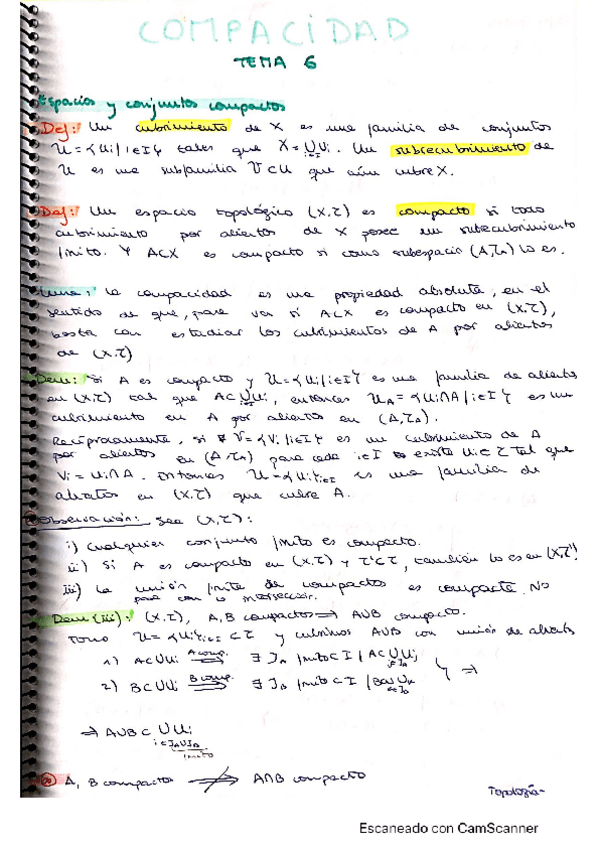 COMPACIDAD
TEMA 6
Espacios y conjuntos compactos
Def: Un cubrimiento de X es una familia de conjuntos
U = {Ui / i∈I} tales que X = ∪Ui. Un subrecubrimiento de
i∈I
U es una subfamilia V⊂U que aún cubre X.
Def: Un espacio topológico (X,τ) es compacto si todo
cubrimiento por abiertos de X posee un subrecubrimiento
finito. Y A⊂X es compacto si como subespacio (A,τA) lo es.
Lema: La compacidad es una propiedad absoluta, en el
sentido de que, para ver si A⊂X es compacto en (X,τ),
basta con estudiar los cubrimientos de A por abiertos
de (X,τ)
Dem: Si A es compacto y U={Ui / i∈I} es una familia de abiertos
en (X,τ) tal que A⊂∪Ui, entonces UA = {Ui∩A / i∈I} es un
cubrimiento en A por abiertos en (A,τA).
Recíprocamente, si V={Vi / i∈I} es un cubrimiento de A
por abiertos en (A,τA) para cada i∈I existe Ui∈τ tal que
Vi = Ui∩A. Entonces U={Ui}i∈I es una familia de
abiertos en (X,τ) que cubre A.
Observación: Sea (X,τ):
i) Cualquier conjunto finito es compacto.
ii) Si A es compacto en (X,τ) y τ'⊂τ, también lo es en (X,τ')
iii) La unión finita de compactos es compacta. No
pasa con la intersección.
Dem (iii): (X,τ), A,B compactos ⇒ A∪B compacto.
Tomo U={Ui}i∈I ⊂ τ y cubrimos A∪B con unión de abiertos
1) A⊂∪Ui A comp. ⇒ ∃ JA finito⊂I / A⊂∪Ui
i∈JA
2) B⊂∪Ui B comp. ⇒ ∃ JB finito⊂I / B⊂∪Ui } ⇒
i∈JB
⇒ A∪B ⊂ ∪Ui
i∈JA∪JB
finito
A, B compactos ⇏ A∩B compacto
Topología-
Escaneado con CamScanner